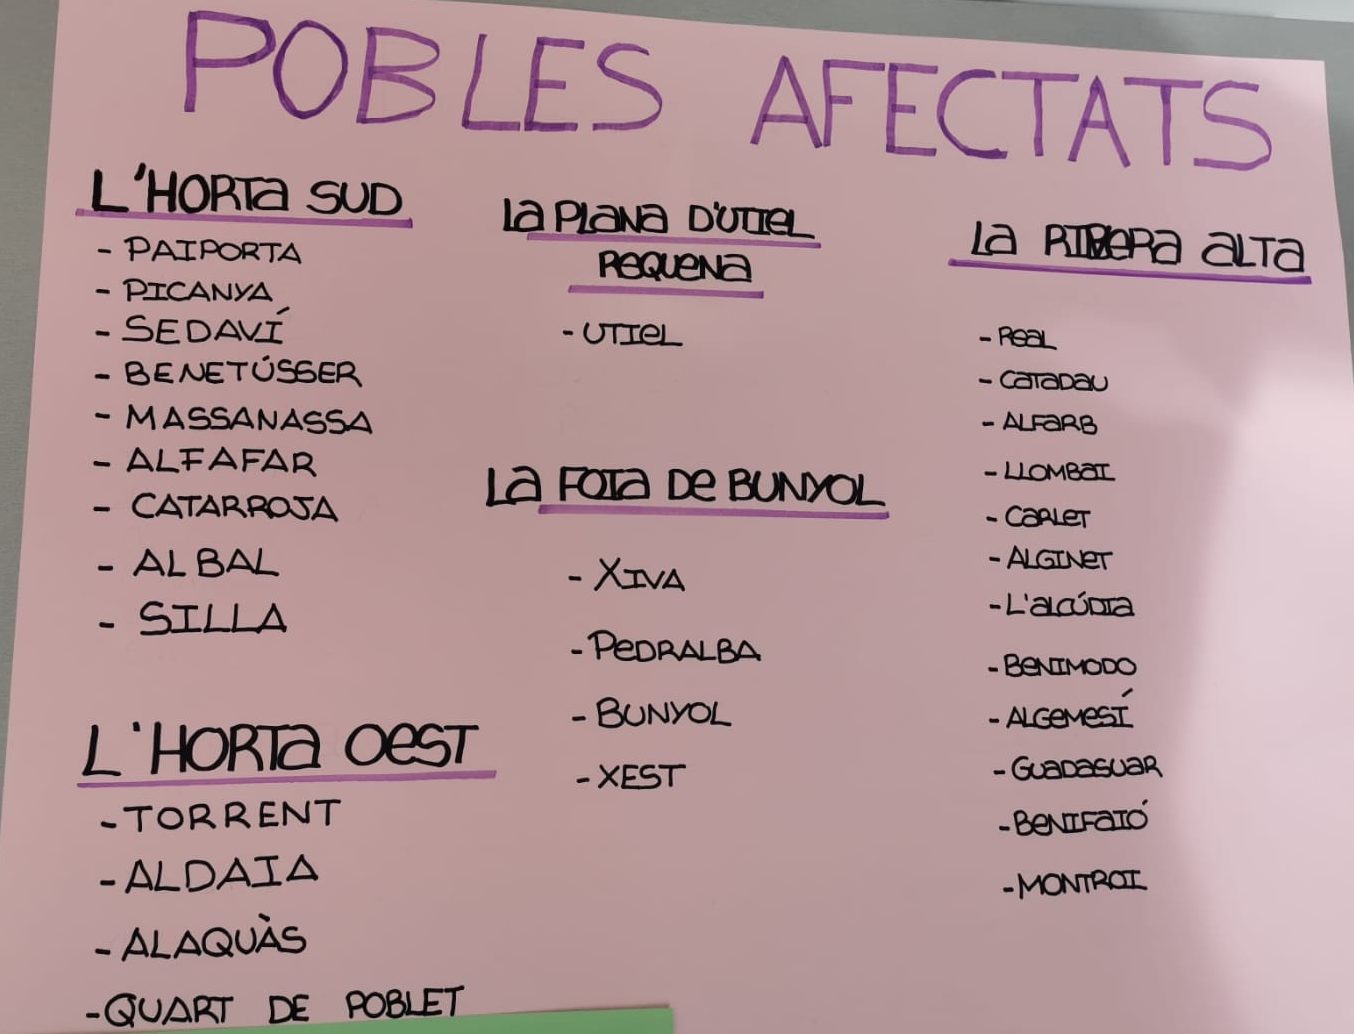 POBLES AFECTATS
L'HORTA SUD
- PAIPORTA
- PICANYA
- SEDAVÍ
- BENETÚSSER
- MASSANASSA
- ALFAFAR
- CATARROJA
- ALBAL
- SILLA
L'HORTA OEST
- TORRENT
- ALDAIA
- ALAQUÀS
- QUART DE POBLET
LA PLANA D'UTIEL
REQUENA
- UTIEL
LA FOIA DE BUNYOL
- XIVA
- PEDRALBA
- BUNYOL
- XEST
LA RIBERA ALTA
- REAL
- CATADAU
- ALFARB
- LLOMBAI
- CARLET
- ALGINET
- L'ALCÚDIA
- BENIMODO
- ALGEMESÍ
- GUADASUAR
- BENIFAIÓ
- MONTROI